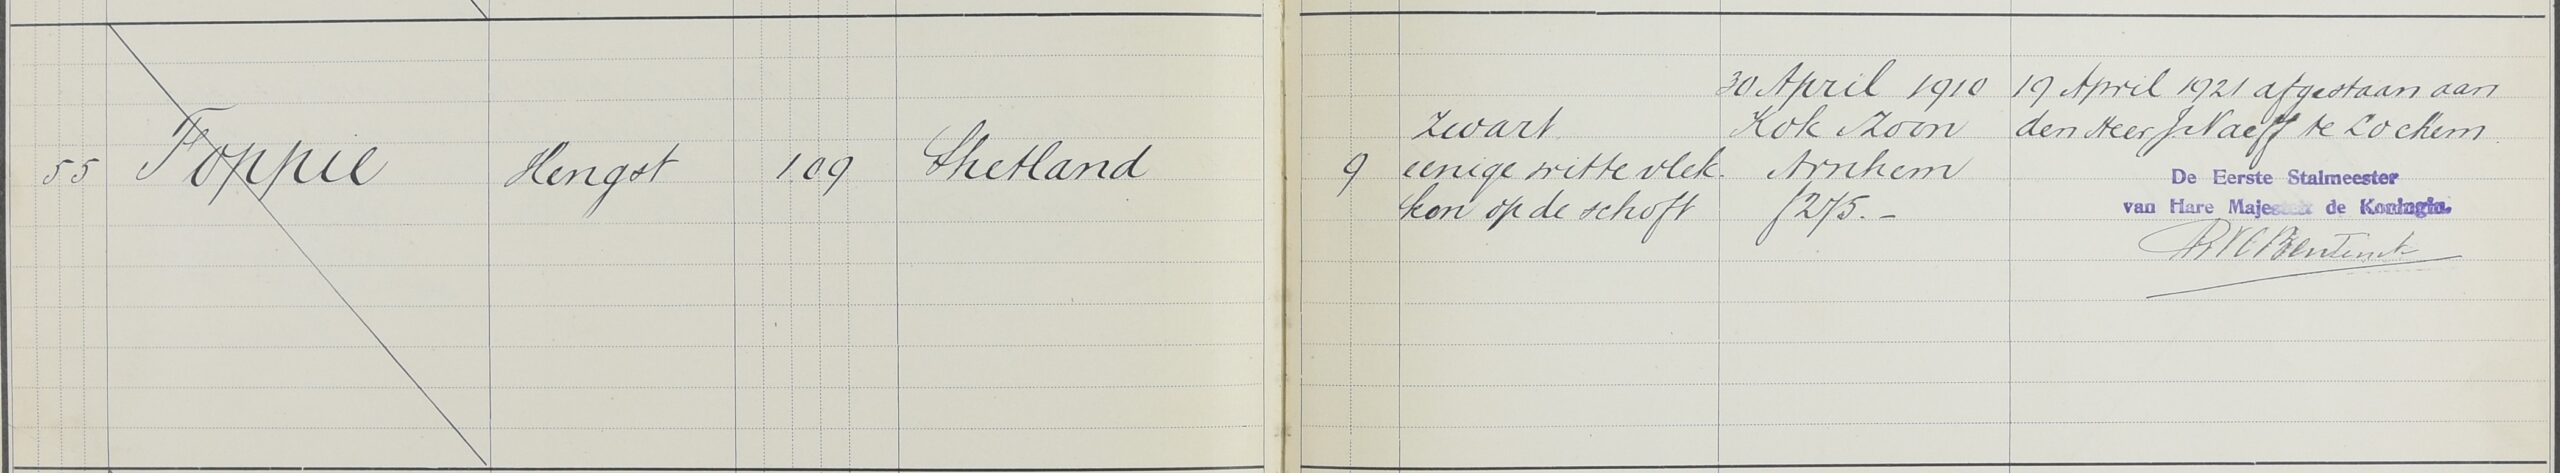 55 Foppie Hengst 1.09 Shetland 9
Zwart
eenige witte vlek-
ken op de schoft
30 April 1910
Kok & Zoon
Arnhem
f 275.-
19 April 1921 afgestaan aan
den Heer J. Naeff te Lochem.
De Eerste Stalmeester
van Hare Majesteit de Koningin.
Bentinck